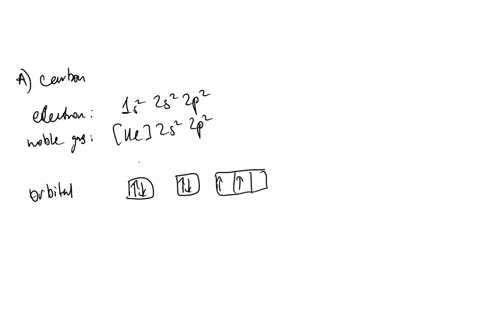 A) carbon
electron: 1s² 2s² 2p²
noble gas: [He] 2s² 2p²
orbital ↑↓ ↑↓ ↑ ↑